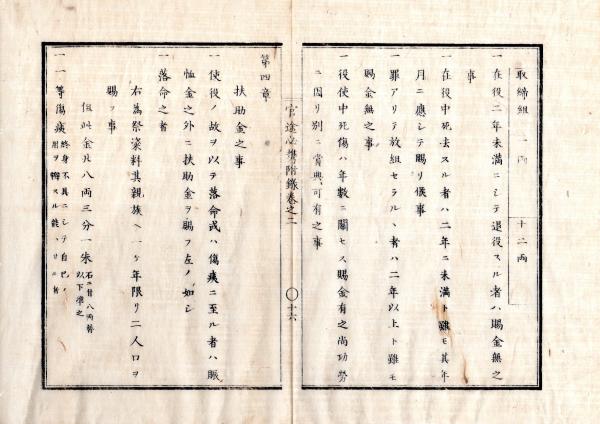 取締組 一両 十二両
一在役二年未満ニシテ退役スル者ハ賜金無之
事
一在役中死去スル者ハ二年ニ未満ト雖モ其年
月ニ應シテ賜リ候事
一罪アリテ放組セラルヽ者ハ二年以上ト雖モ
賜金無之事
一役使中死傷ハ年數ニ關セス賜金有之尚功勞
ニ因リ別ニ賞典可有之事
官途必携附錄巻之二 〇十六
第四章
扶助金之事
一使役ノ故ヲ以テ落命或ハ傷痍ニ至ル者ハ賑
恤金之外ニ扶助金ヲ賜フ左ノ如シ
一落命之者
右為祭粢料其親族ヘ一ヶ年限リ二人口ヲ
賜フ事
但此金凡八両三分一朱 石ニ付八両替 以下准之
一一等傷痍 終身不具ニシテ自己ノ 用ヲ辨スル能ハサル者